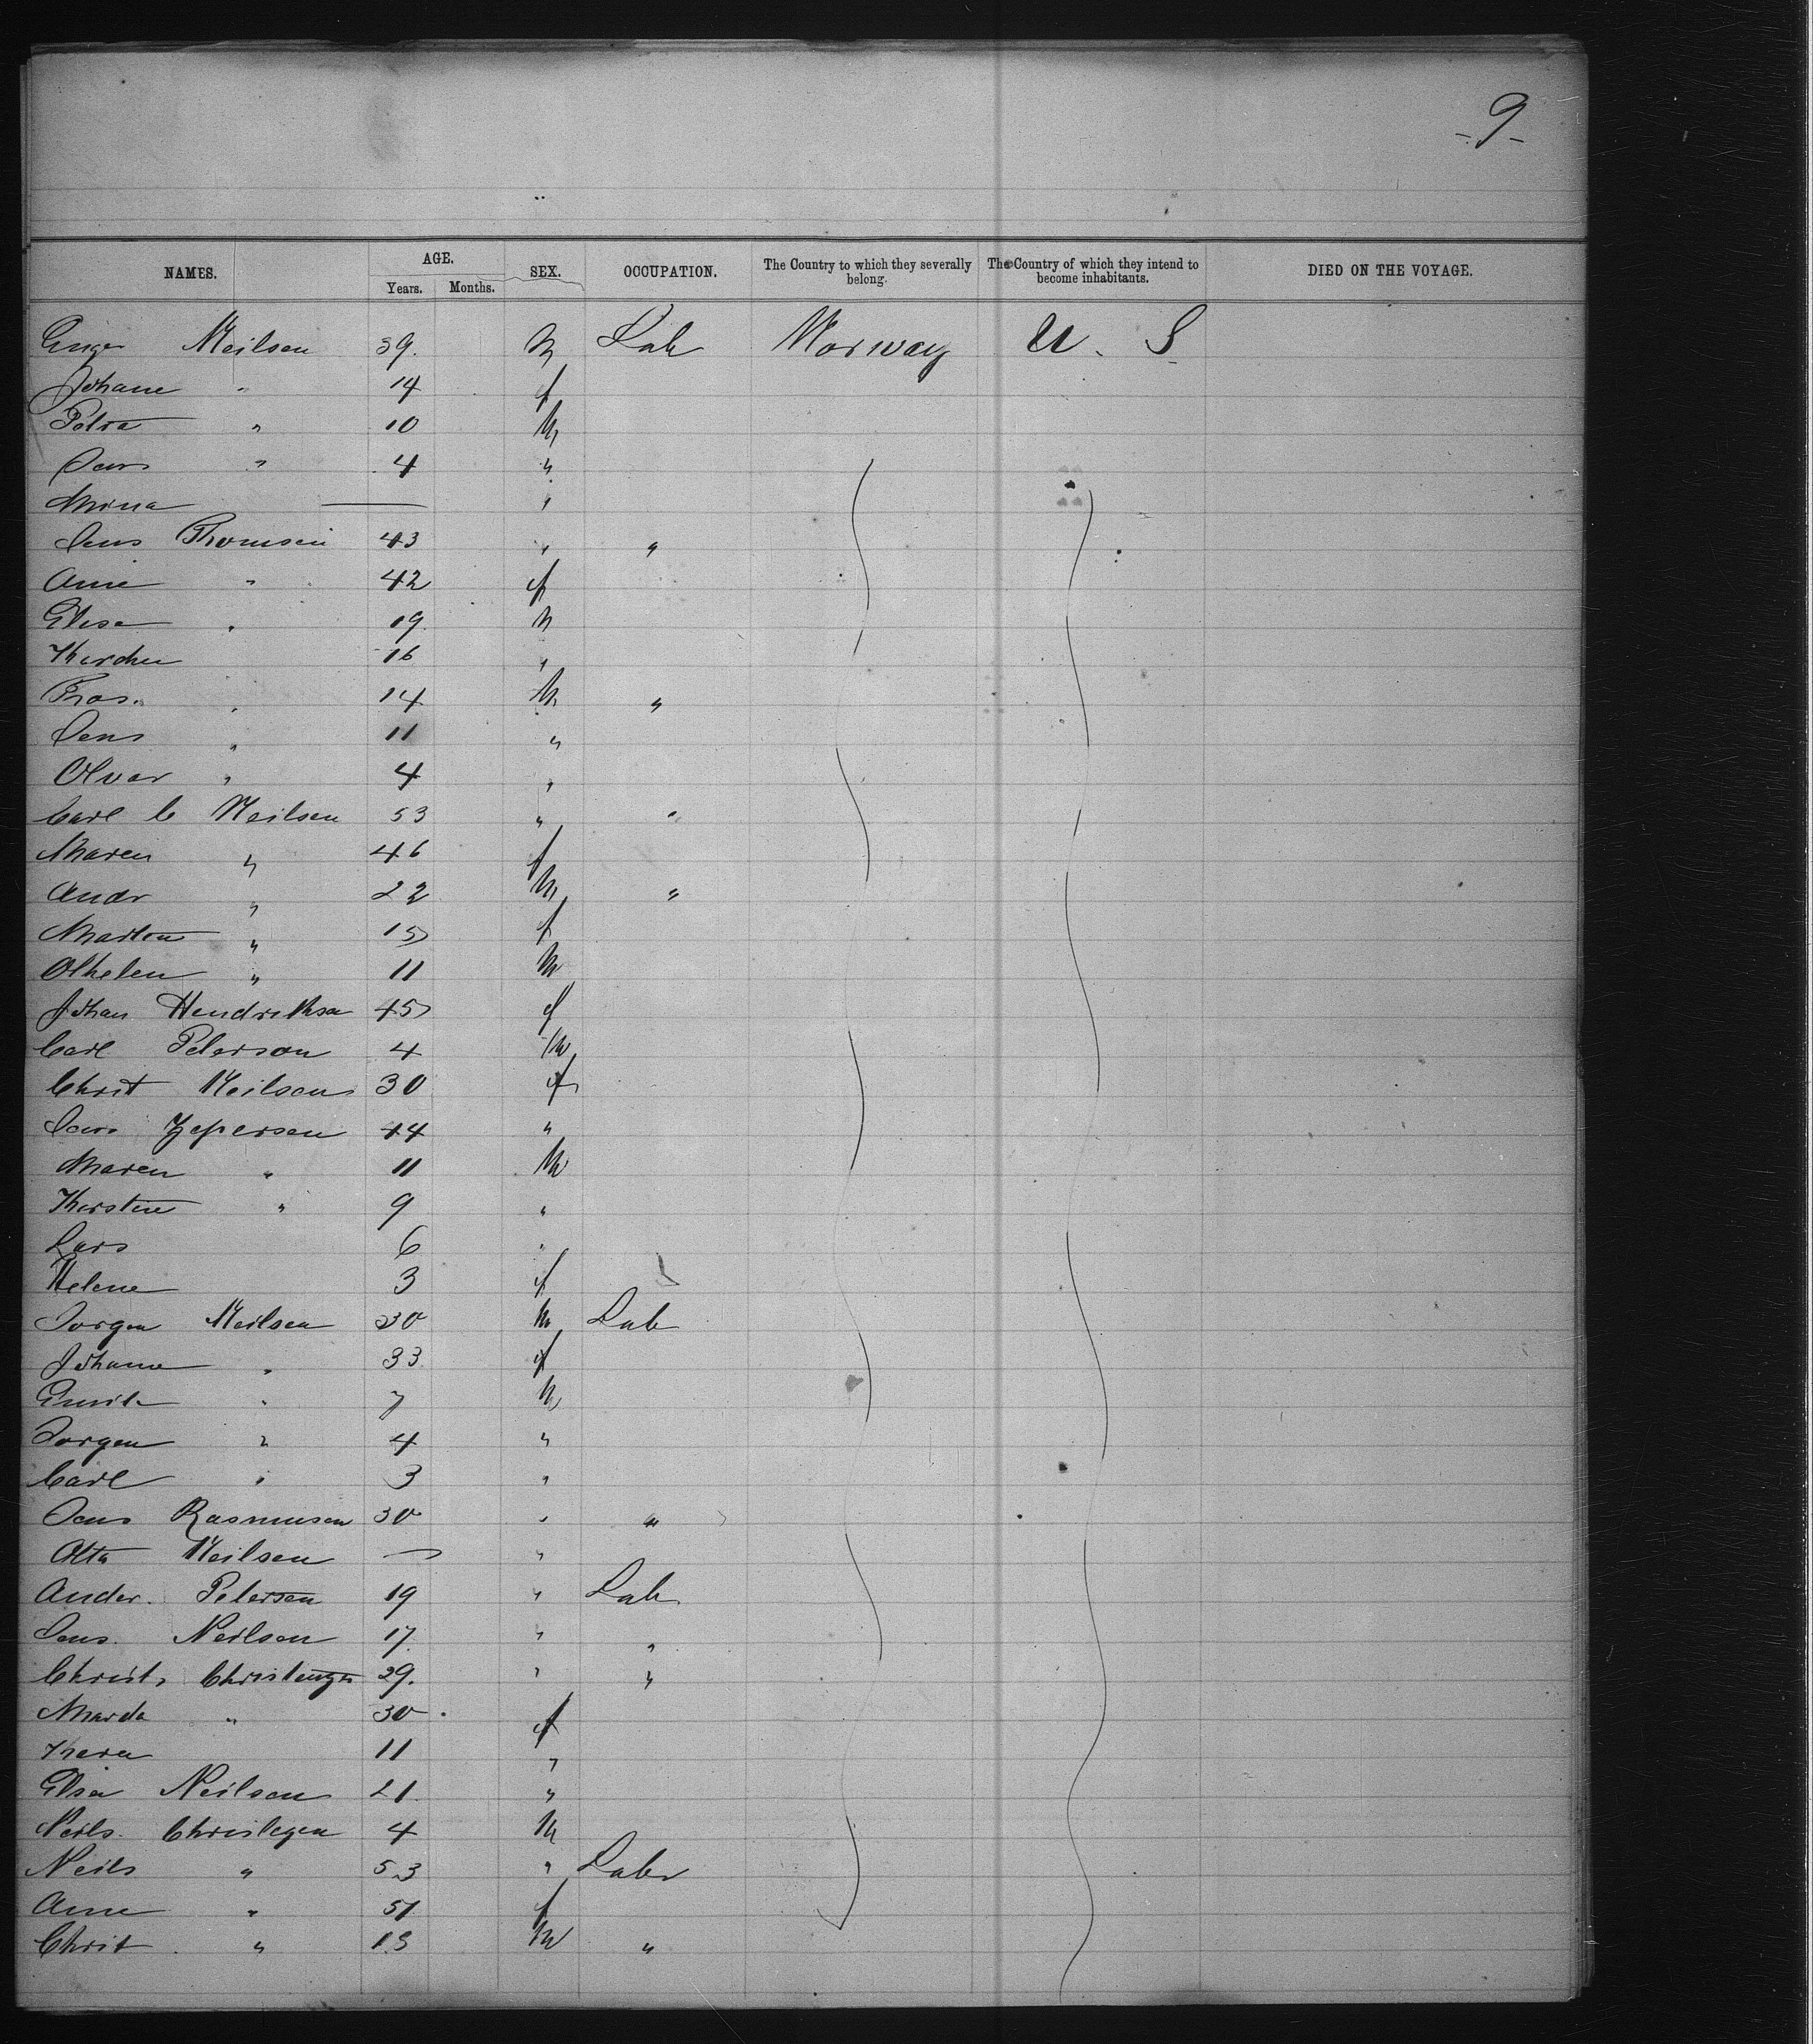 - 9 -
NAMES. AGE. Years. Months. SEX. OCCUPATION. The Country to which they severally belong. The Country of which they intend to become inhabitants. DIED ON THE VOYAGE.
Neilsen 39. M Lab Norway U. S
Johane " 14 f
Petra " 10 M
" 4 "
Mina — "
Jens Thomsen 43 " "
Ane " 42 f
Elise " 19 M
16 "
Thos. " 14 M "
Jens " 11 "
Olvar " 4 "
Carl C Neilsen 53 " "
Maren " 46 f
Andr " 22 M "
" 15 f
" 11 M
Johan Hendriksen 45 f
Carl Peterson 4 M
Christ Neilsen 30 f
44 "
Maren " 11 M
Kerstine " 9 "
Lars 6 "
Helene 3 f
Jorgen Neilsen 30 M Lab
Johane " 33 f
Emil " 7 M
Jorgen " 4 "
Carl " 3 "
Jens Rasmusen 30 " "
Otto Neilsen — "
Ander. Petersen 19 " Lab
Jens. Neilson 17 " "
Christ. 29. " "
" 30 f
11 "
Elsa Neilson 21 "
Neils. 4 M
Neils " 53 " Lab
Ane " 51 f
Christ " M "